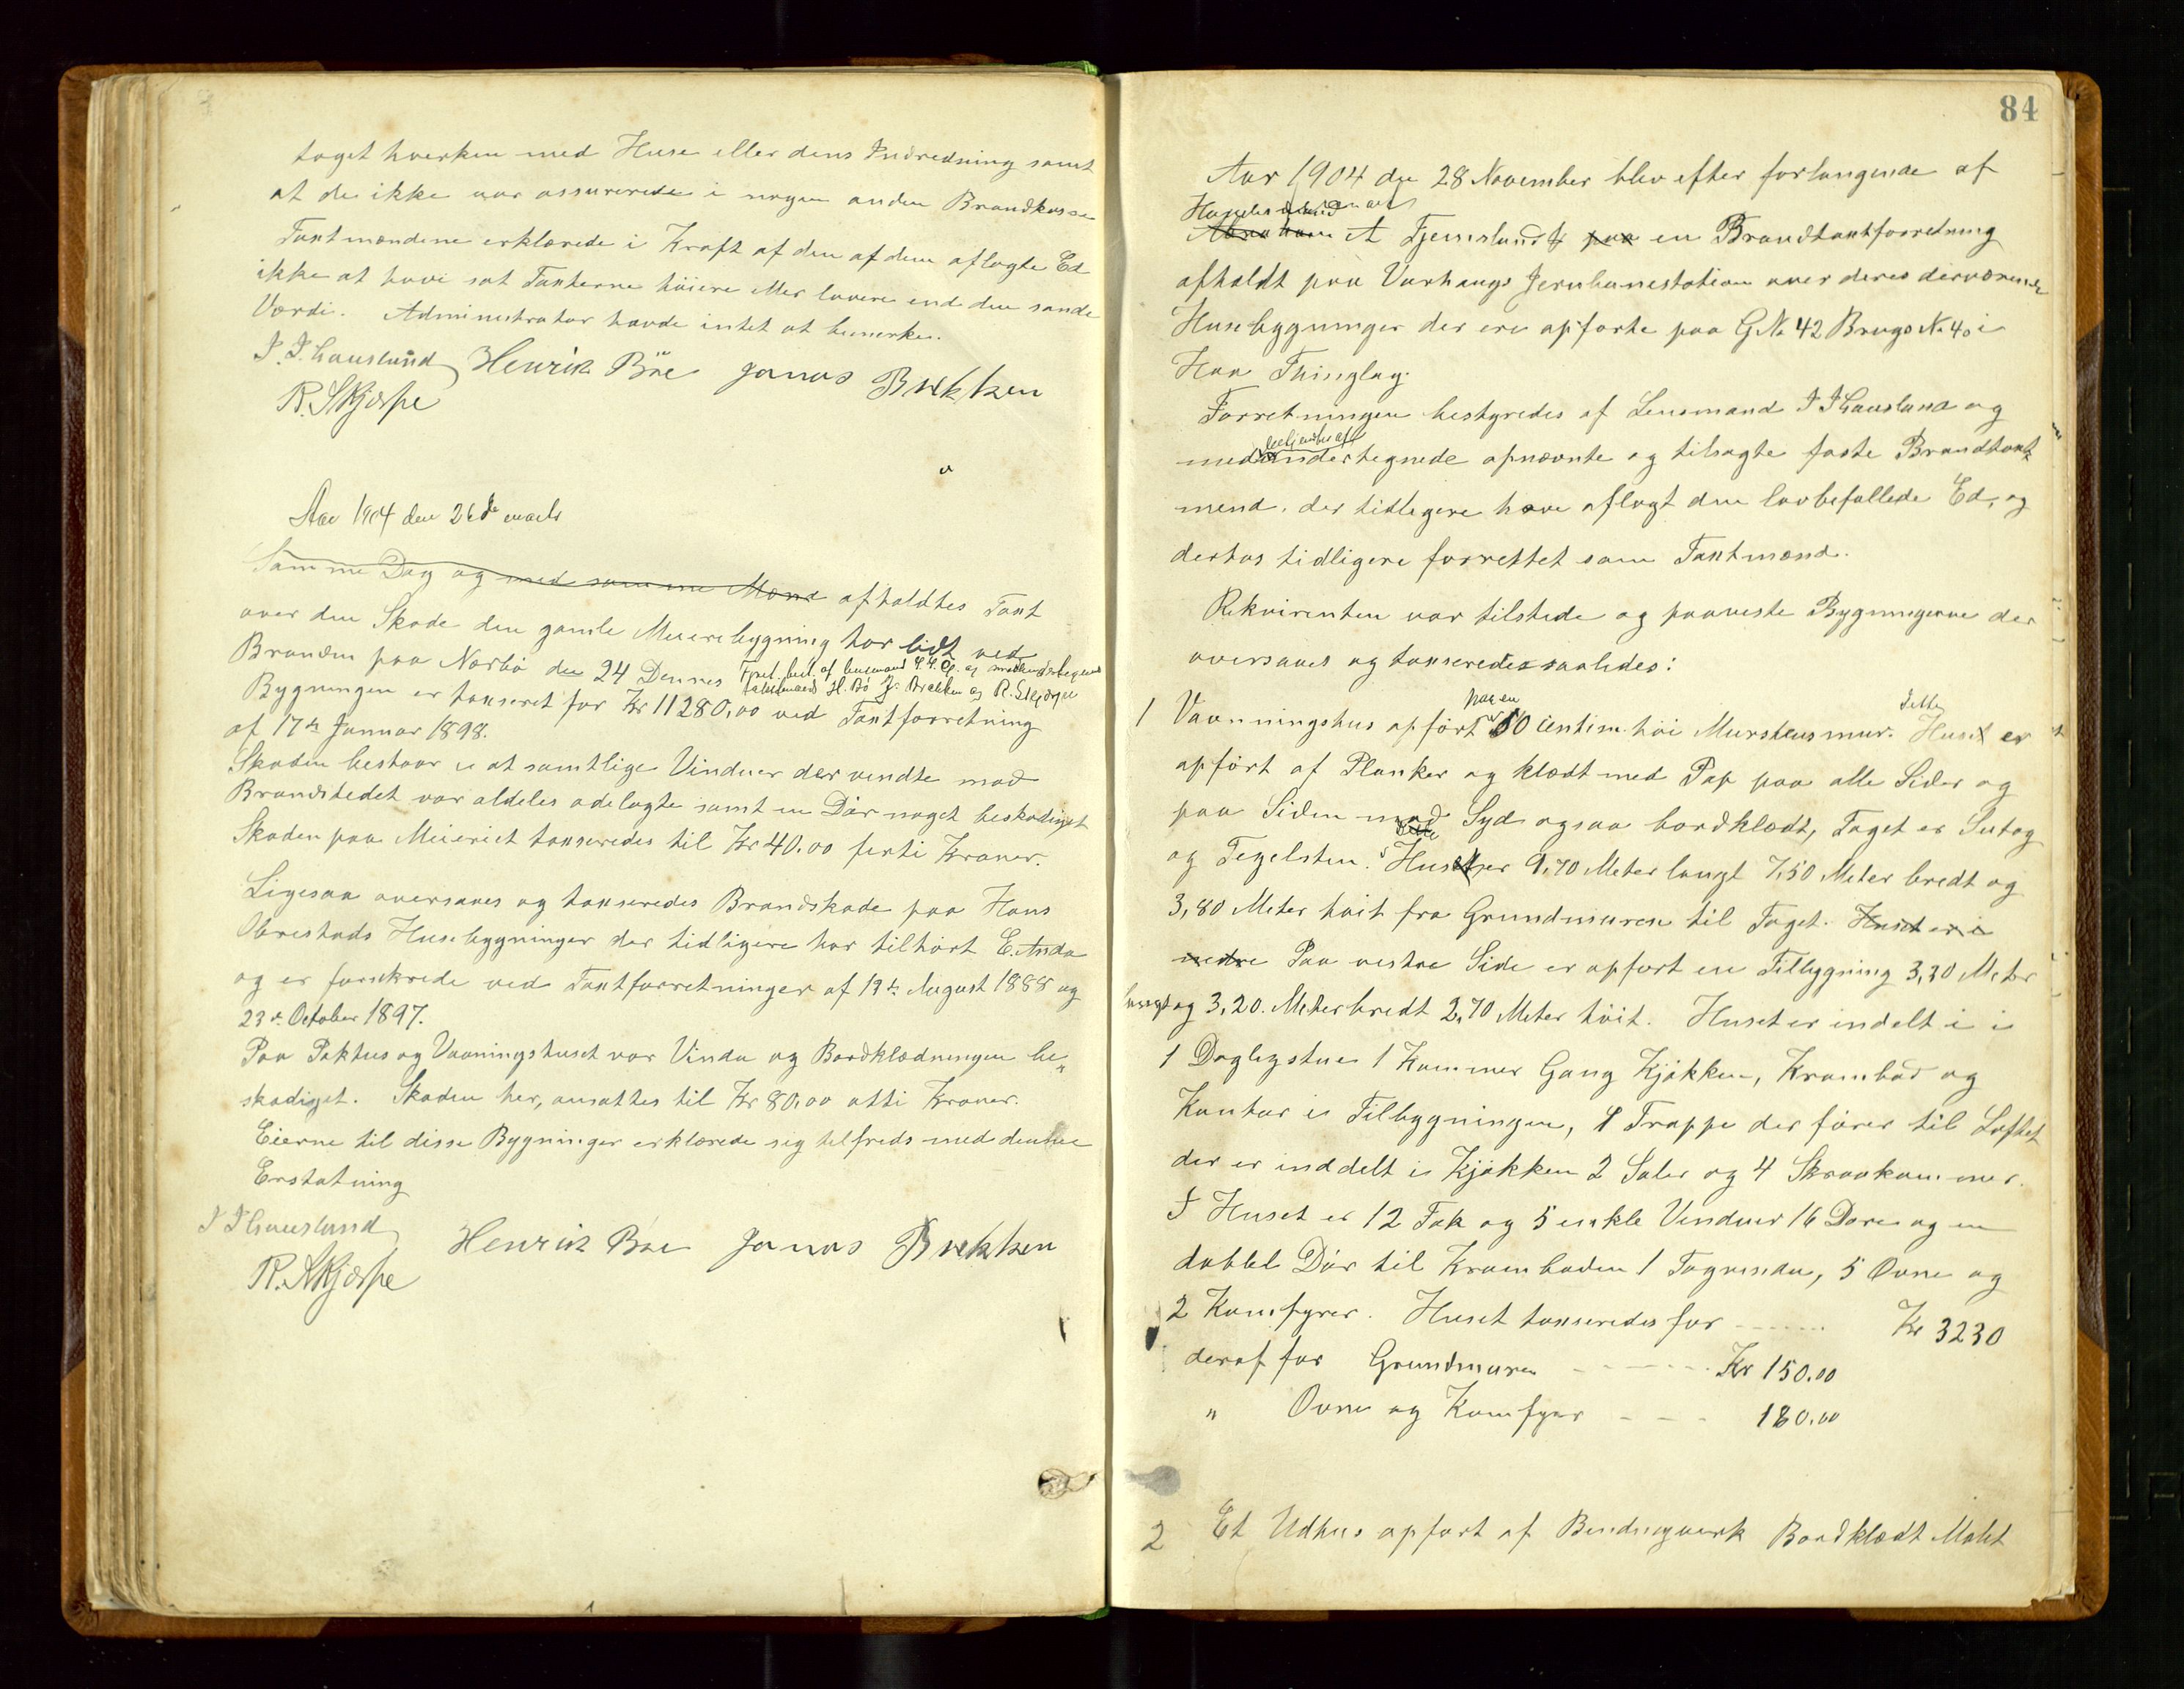 taget hverken med Huse eller dens Indredning samt
at de ikke var assurerede i nogen anden Brandkasse
Taxtmændene erklærede i Kraft af den af dem aflagte Ed
ikke at have sat Taxterne höiere eller lavere end den sande
Værdi. Administrator havde intet at bemerke.
J. J. Hausland Henrik Böe Jonas Brekken
R. Skjærpe
Aar 1904 den 26de marts
Samme Dag og med samme Mænd afholdtes Taxt
over den Skade den gamle Meieribygning har lidt ved
Branden paa Nærbö den 24 Dennes Forret. best. af lensmand og medundertegnede
taxtmænd H. Bö J. Brekken og R. Skjærpe
Bygningen er taxseret for Kr 11280,00 ved Taxtforretning
af 17de Januar 1898.
Skaden bestaar i at samtlige Vinduer der vendte mod
Brandstedet var aldeles ødelagte samt en Dör noget beskadiget
Skaden paa Meieriet taxseredes til Kr 40.00 førti Kroner.
Ligesaa oversaaes og taxseredes Brandskade paa Hans
Obrestads Husebygninger der tidligere har tilhört E. Anda
og er forsikrede ved Taxtforretninger af 13de August 1888 og
23de October 1897.
Paa Pakhus og Vaaningshuset var Vindu og Bordklædningen be„
skadiget. Skaden her, ansattes til Kr 80,00 otti Kroner.
Eierne til disse Bygninger erklærede sig tilfreds med denne
Erstatning
J J Hausland Henrik Böe Jonas Brekken
R. Skjærpe
84
Aar 1904 den 28 November blev efter forlangende af
Handelsmand
Abraham A Fjermslandt paa en Brandtaxtforretning
afholdt paa Varhaugs Jernbanestation over deres derværende
Husebygninger der ere opførte paa G No 42 Brugs No 40 i
Haa Thinglag.
Forretningen bestyredes af Lensmand J J Hausland og
med undertegnede opnævnte og tilsagte faste Brandtaxt
mænd, der tidligere have aflagt den lovbefallede Ed, og
dertos tidligere forrettet som Taxtmænd.
Rekvirenten var tilstede og paaviste Bygningerne der
oversaaes og taxseredes saaledes:
paa en Dette
1 Vaaningshus opfört 50 centim. höi Murstensmur. Huset er
opfört af Planker og klædt med Pap paa alle Sider og
paa Siden mod Syd ogsaa bordklædt, Taget er Sutag
og Tegelsten. Huset er 9,70 Meter langt 7,50 Meter bredt og
3,80 Meter höit fra Grundmuren til Taget. Huset er i
nedre Paa vestre Side er opført en Tilbygning 3,30 Meter
langt og 3,20. Meter bredt 2,70 Meter höit. Huset er indelt i i
1 Daglegstue 1 Kammer Gang Kjökken, Krambod og
Kontor i Tilbygningen, 1 Trappe der förer til Loftet
der er inddelt i Kjökken 2 Saler og 4 Skraakammer.
I Huset er 12 Fak og 5 enkle Venduer 16 Döre og en
dobbel Dör til Kramboden 1 Tagvindu, 5 Ovne og
2 Komfyrer. Huset taxseredes for ------ Kr 3230
deraf for Grundmuren ------ Kr 150.00
„ Ovne og Komfyrer --- 180.00
2 Et Udhus opført af Bindingverk Bordklædt Malet